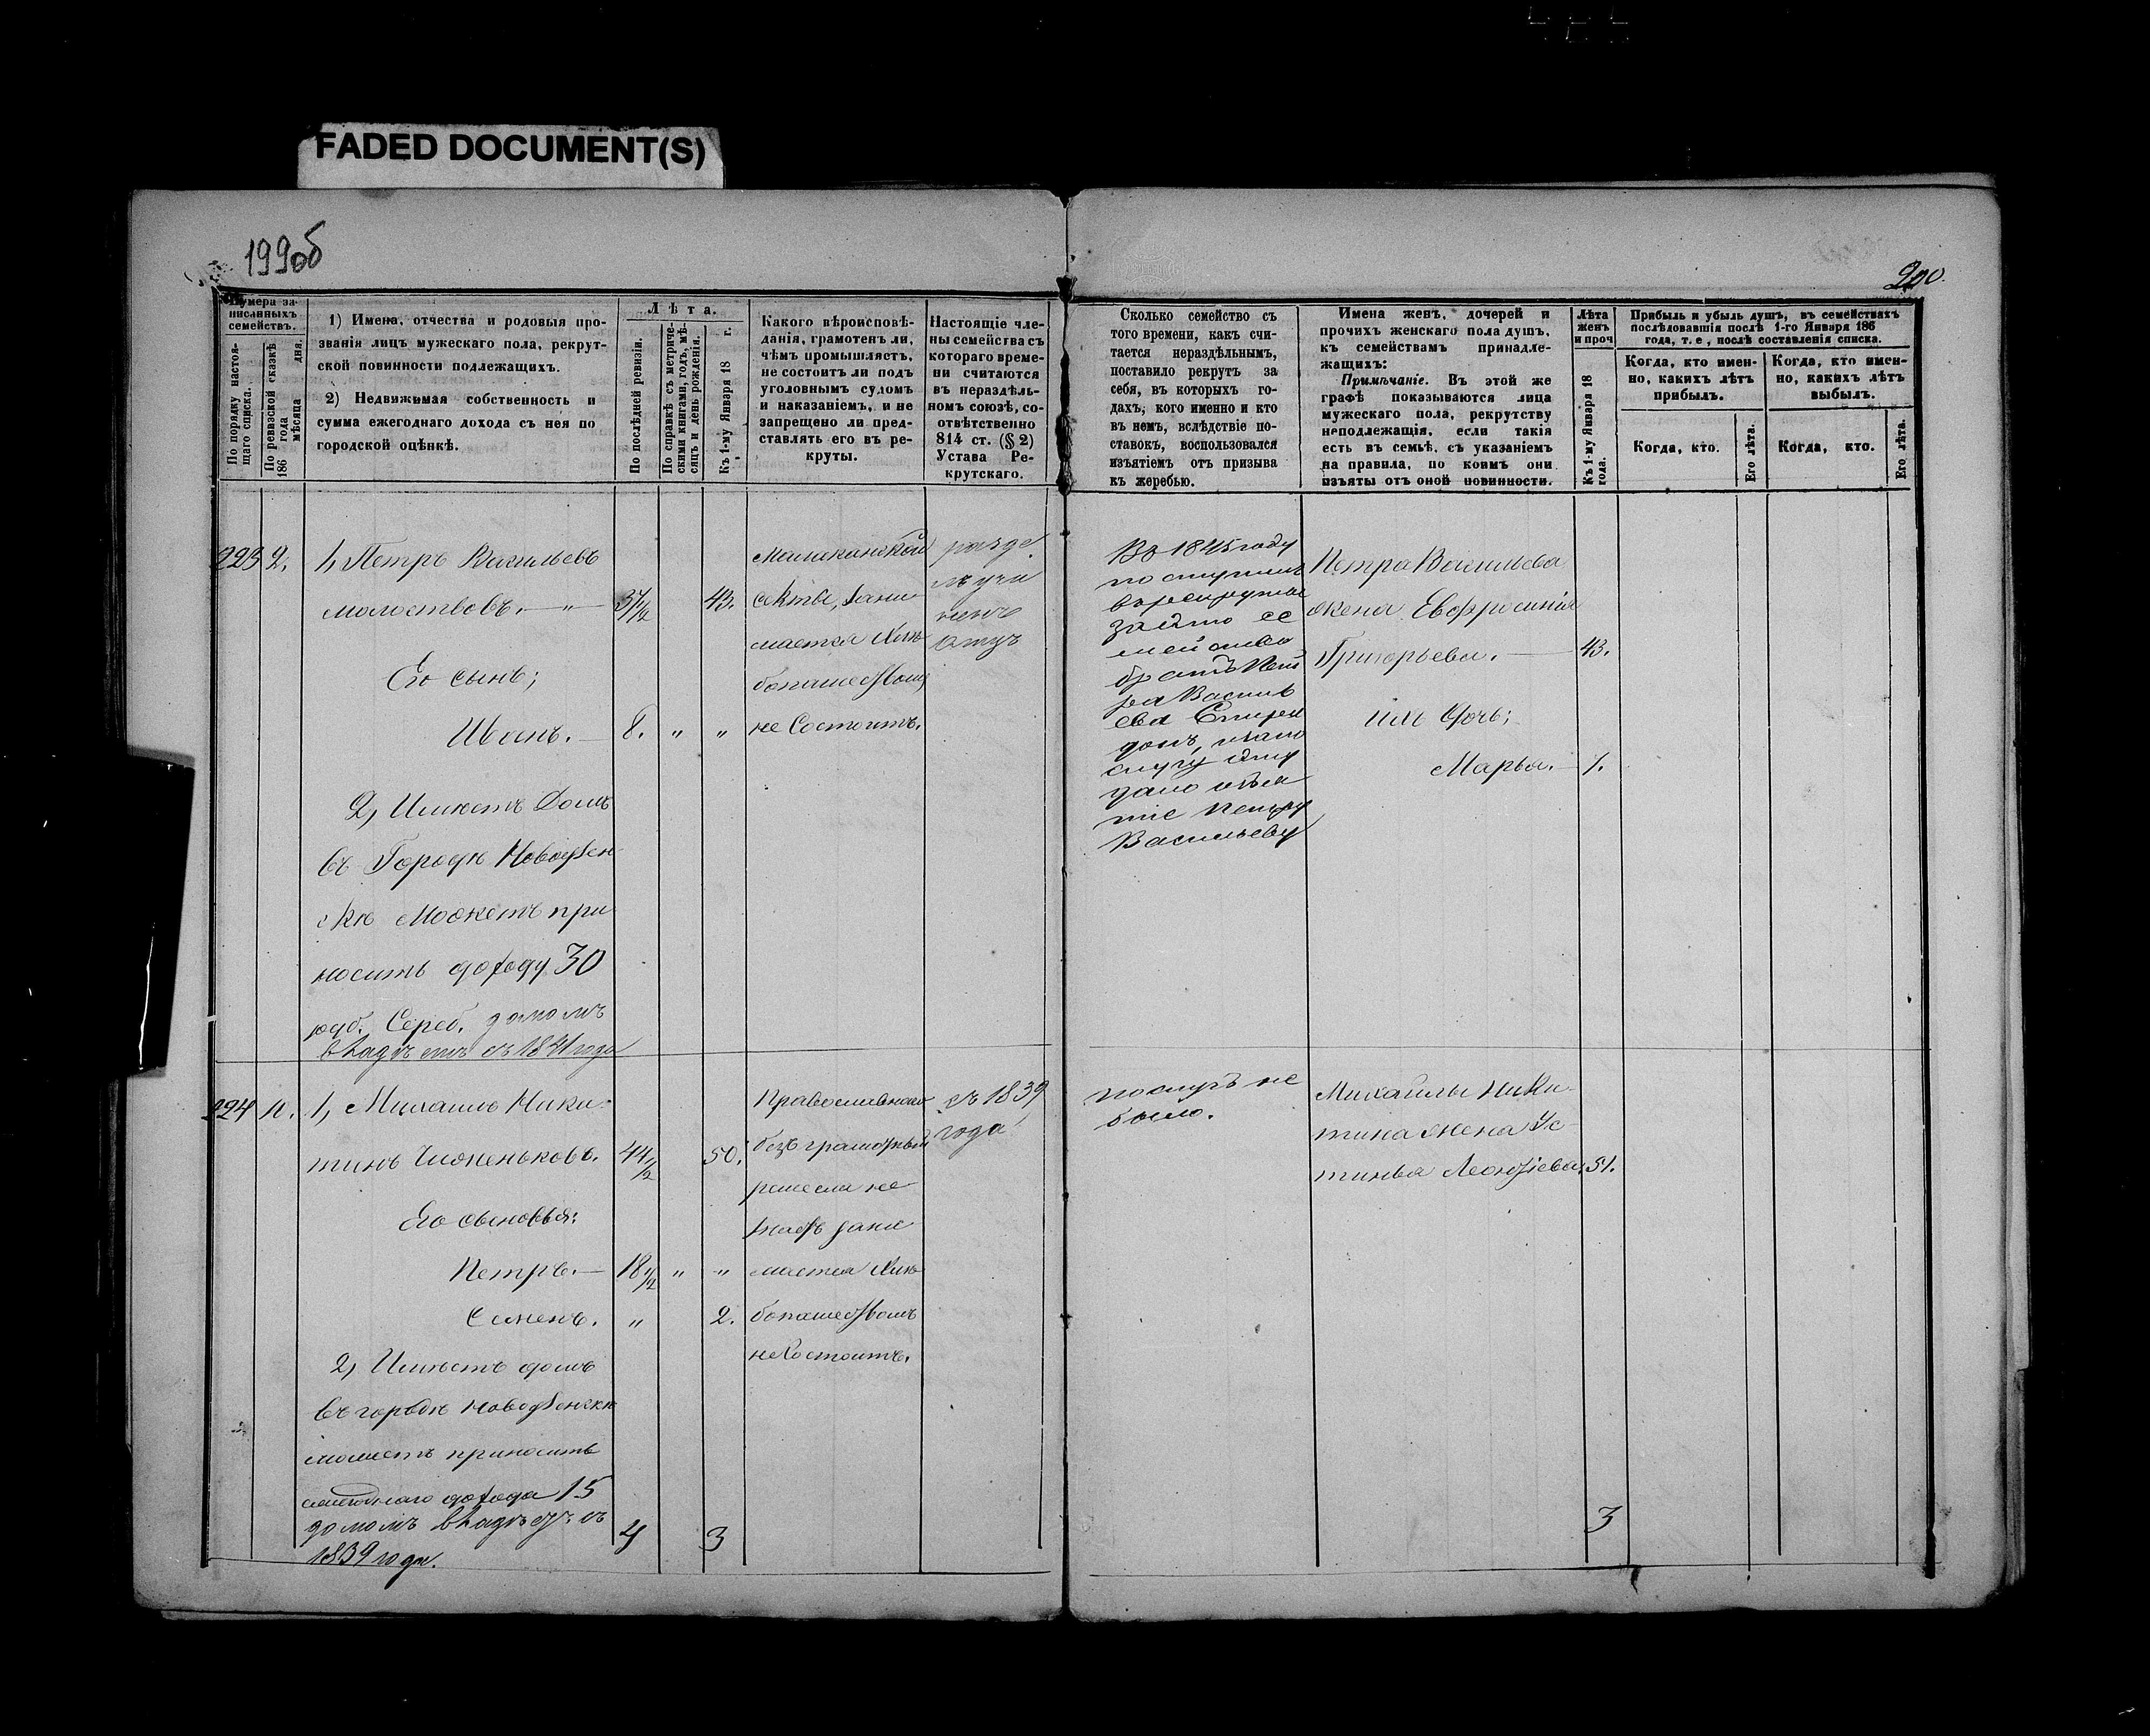 FADED DOCUMENT(S)
199об
200.
Нумера за-
писанныхъ
семействъ.
По порядку настоя-
щаго списка.
По ревизской сказкѣ
186 года
мѣсяца дня.
1) Имена, отчества и родовыя про-
званія лицъ мужескаго пола, рекрут-
ской повинности подлежащихъ.
2) Недвижимая собственность и
сумма ежегоднаго дохода съ нея по
городской оцѣнкѣ.
Лѣта.
По послѣдней ревизіи.
По справкѣ съ метриче-
скими книгами, годъ, мѣ-
сяцъ и день рожденія.
Къ 1-му Января 18 г.
Какого вѣроисповѣ-
данія, грамотенъ ли,
чѣмъ промышляетъ,
не состоитъ ли подъ
уголовнымъ судомъ
и наказаніемъ, и не
запрещено ли пред-
ставлять его въ ре-
круты.
Настоящіе чле-
ны семейства съ
котораго време-
ни считаются
въ нераздѣль-
номъ союзѣ, со-
отвѣтственно
814 ст. (§ 2)
Устава Ре-
крутскаго.
Сколько семейство съ
того времени, какъ счи-
тается нераздѣльнымъ,
поставило рекрутъ за
себя, въ которыхъ го-
дахъ, кого именно и кто
въ немъ, вслѣдствіе по-
ставокъ, воспользовался
изъятіемъ отъ призыва
къ жеребью.
Имена женъ, дочерей и
прочихъ женскаго пола душъ,
къ семействамъ принадле-
жащихъ:
Примѣчаніе. Въ этой же
графѣ показываются лица
мужескаго пола, рекрутству
неподлежащія, если такія
есть въ семьѣ, съ указаніемъ
на правила, по коимъ они
изъяты отъ оной повинности.
Лѣта
женъ
и проч
Къ 1-му Января 18
года.
Прибыль и убыль душъ, въ семействахъ
послѣдовавшія послѣ 1-го Января 186
года, т. е., послѣ составленія списка.
Когда, кто имен-
но, какихъ лѣтъ
прибылъ.
Когда, кто имен-
но, какихъ лѣтъ
выбылъ.
Когда, кто.
Его лѣта.
Когда, кто.
Его лѣта.
223 2. 1, Петръ Васильевъ
Молоствовъ. — „ — 37 1/2 43.
Его сынъ;
Иванъ. — 8. „ „
2, Имѣетъ домъ
въ Городѣ Новоузен-
скѣ Можетъ при
носить доходу 30
руб. Сереб. домомъ
владѣетъ съ 1841 года
Малаканской
секты, зани
мается Хлѣ-
бопашествомъ
не Состоитъ.
разде
лъ учи
ненъ
Въ 1845 году
поступилъ
въ рекруты
за это се
мейство
братъ Пет
ра Василь
ева Спири
донъ,
дано изъя
тіе Петру
Васильеву
Петра Васильева
жена Евфросинія
Григорьева. — 43.
ихъ дочь;
Марья. — 7.
224 10. 1, Михаилъ Ники-
тинъ Чиженьковъ. 44 1/2 50.
Его сыновья:
Петръ. — 18 1/2 „ „
Семенъ. „ 2.
2, Имѣетъ домъ
въ городѣ Новоузенскѣ
можетъ приносить
ежегоднаго дохода 15
домомъ владѣетъ съ
1839 года.
4 3
Православнаго
безъ грамотный
ремесла не
знаетъ зани
мается Хлѣ-
бопашествомъ
не Состоитъ.
съ 1839
года
поступъ не
было.
Михайлы Ники-
тина жена Ус
тинья Леонтіева. 51.
3